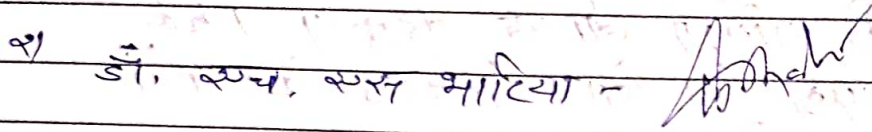 २) डॉ. एच. एस भाटिया -